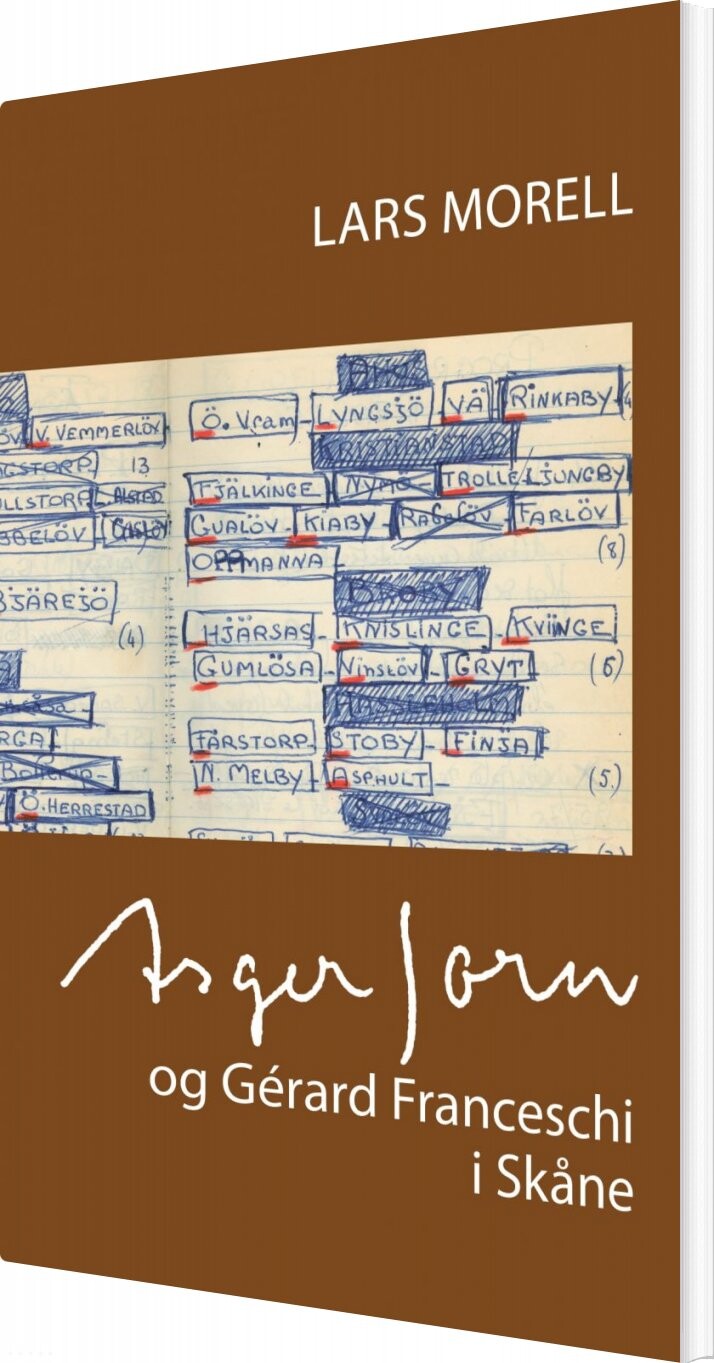 LARS MORELL
V. VEMMERLÖV
13
L. ALSTAD
BJÄREJÖ
(4)
Ö. HERRESTAD
Ö. Vram - LYNGSJÖ VÄ RINKABY
KRISTIANSTAD
FJÄLKINGE NYMÖ TROLLE LJUNGBY
GUALÖV - KIABY - FARLÖV
(8)
OPPMANNA
HJÄRSAS - KNISLINGE - KVIINGE
GUMLÖSA - Vinslöv - GRYT (6)
FÄRSTORP - STOBY - FINJA
N. MELBY - ASPHULT - (5.)
Asger Jorn
og Gérard Franceschi
i Skåne